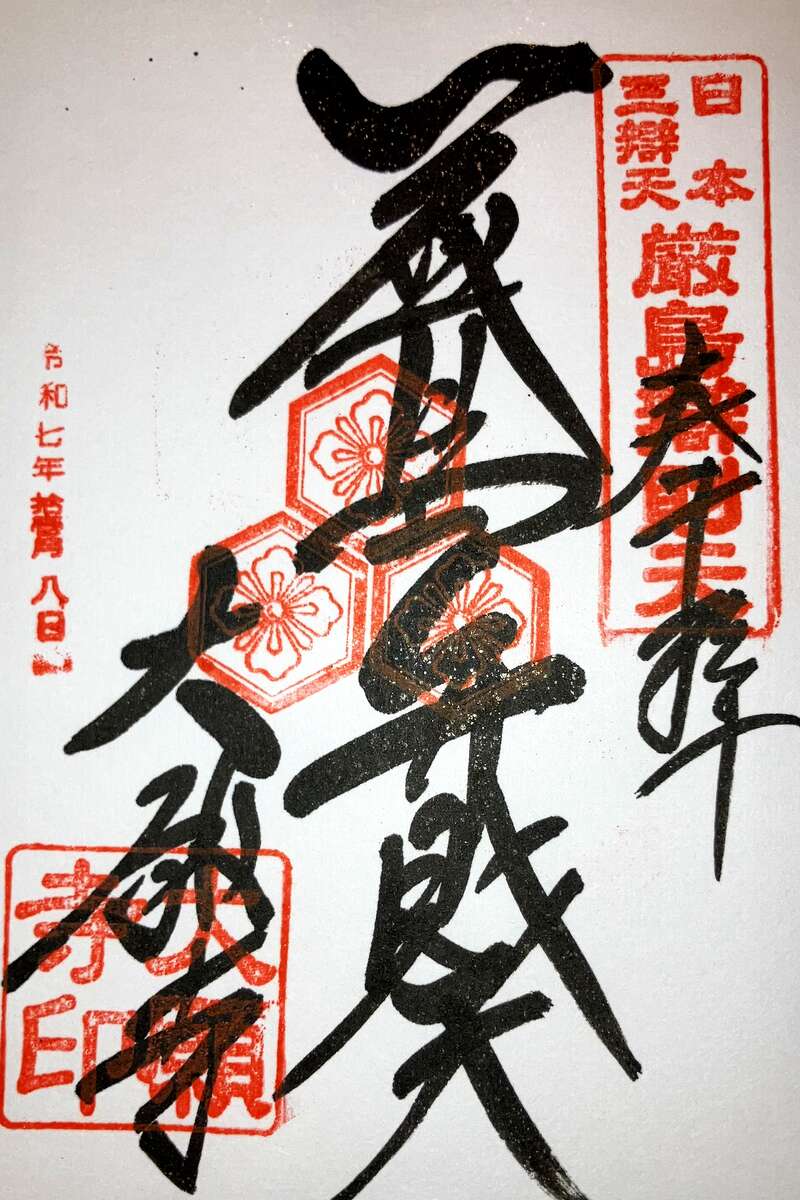 日本
三辯天
厳島辯財天
奉拝
厳島弁財天
大願寺
大願
寺印
令和七年 八日